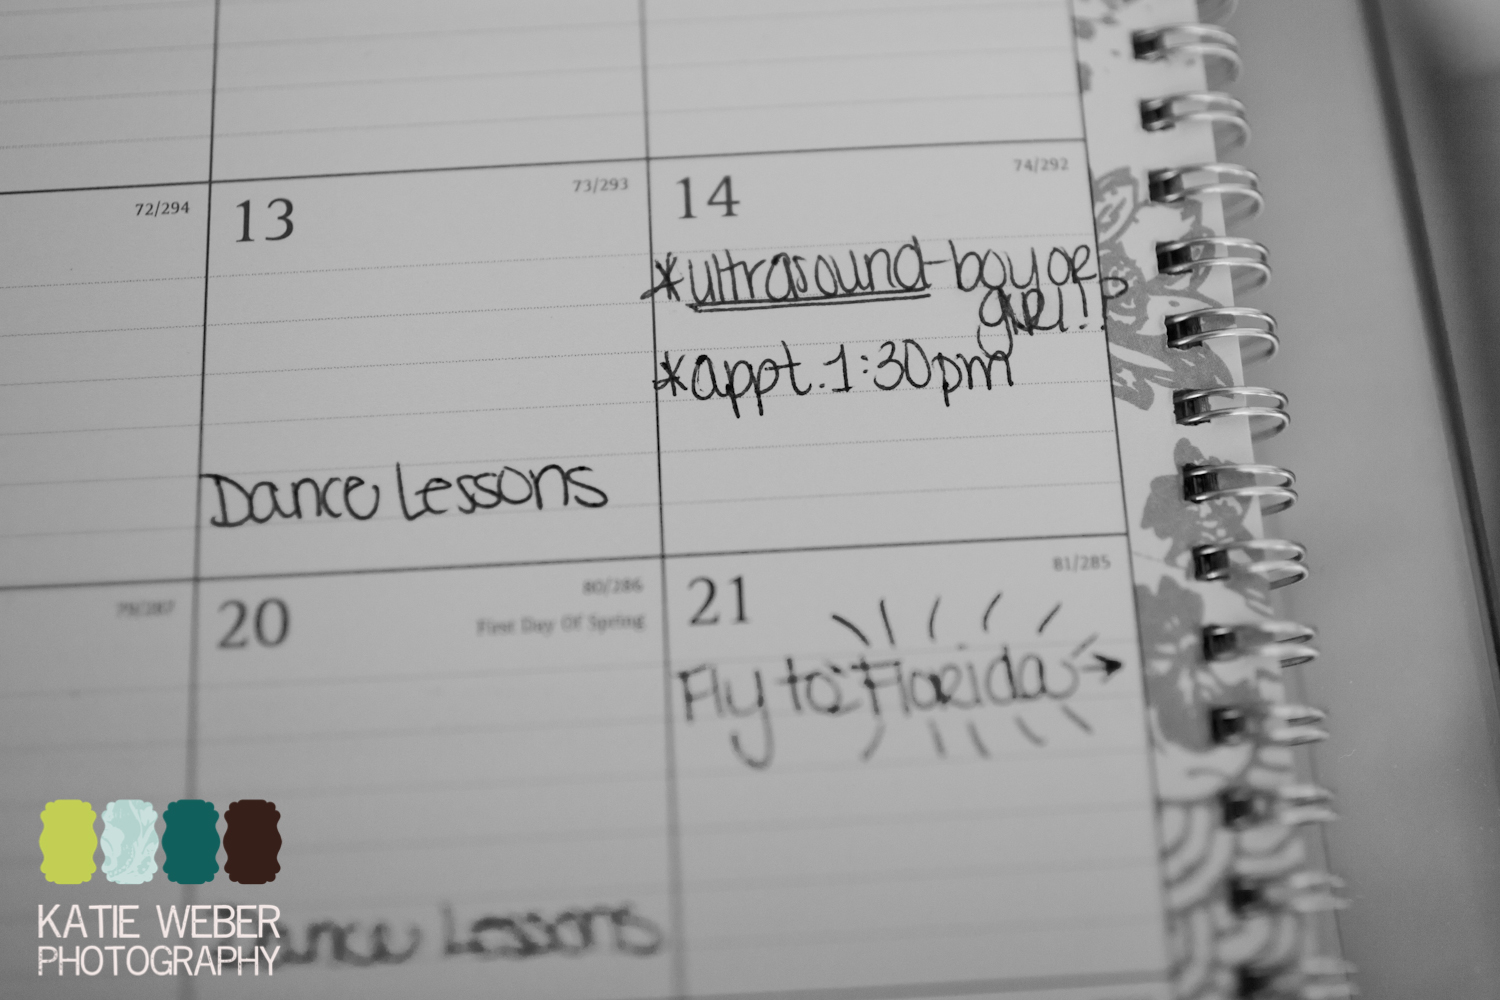 72/294
13
73/293
14
74/292
*ultrasound-boy or
girl!?
*appt. 1:30pm
Dance Lessons
79/287
20
80/286
First Day Of Spring
21
81/285
Fly to Florida →
Dance Lessons
KATIE WEBER
PHOTOGRAPHY